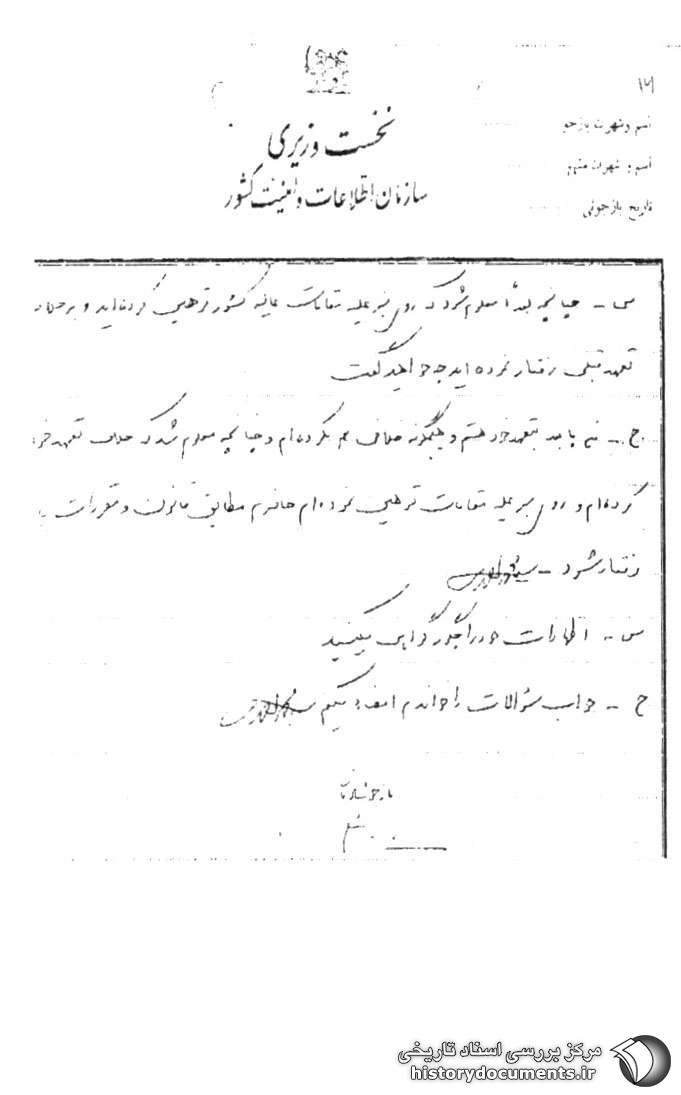 نخست وزیری
سازمان اطلاعات و امنیت کشور
اسم و شهرت بازجو
اسم و شهرت متهم
تاریخ بازجوئی
س - چنانچه بعداً معلوم شود که روی منبر علیه مقامات عالیه کشور توهین کرده‌اید و برخلاف
تعهد قبلی رفتار نموده اید چه خواهید گفت
ج - من پابند بتعهد خود هستم و هیچگونه خلافی هم نکرده‌ام و چنانچه معلوم شد که خلاف تعهد خود
کرده‌ام و روی منبر علیه مقامات توهین نموده‌ام حاضرم مطابق قانون و مقررات
رفتار شود -
س - اظهارات خود را چگونه گواهی میکنید
ج - جواب سؤالات را خواندم امضاء میکنم
مرکز بررسی اسناد تاریخی
historydocuments.ir